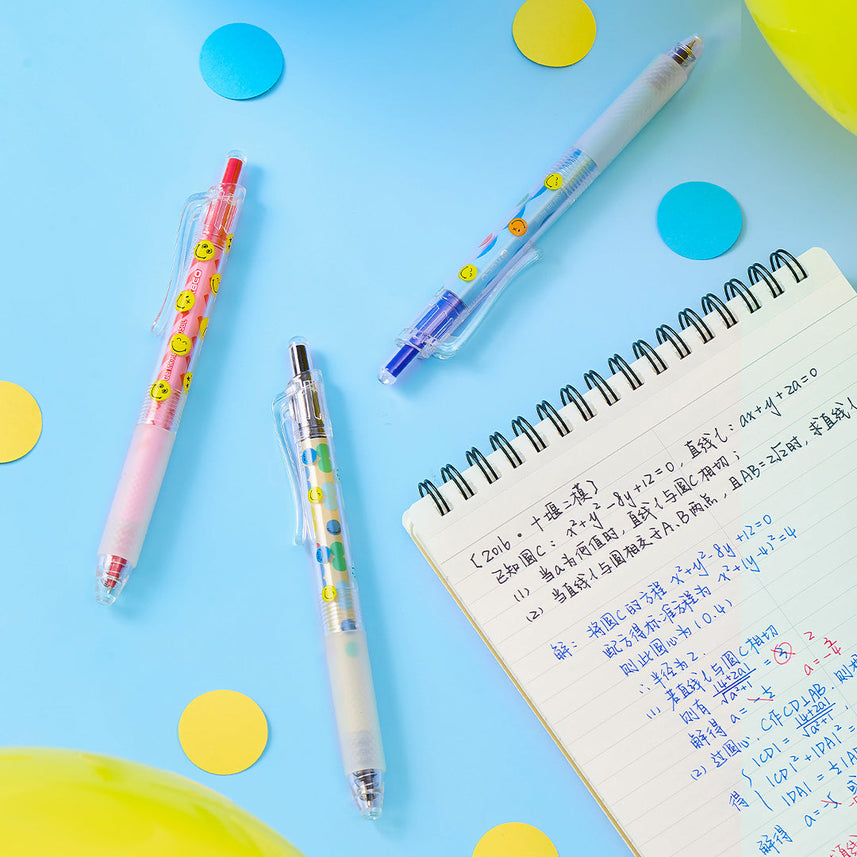 [2016·十堰二模]
已知圆C: x²+y²-8y+12=0, 直线l: ax+y+2a=0
(1) 当a为何值时, 直线l与圆C相切;
(2) 当直线l与圆相交于A.B两点, 且AB=2√2时, 求直线l
解: 将圆C的方程 x²+y²-8y+12=0
配方得标准方程为 x²+(y-4)²=4
则此圆心为(0.4)
∴半径为2.
(1) 若直线l与圆C相切
则有 |4+2a|/√a²+1 = 3 2
解得 a=- a=-3/4
(2) 过圆心.C作CD⊥AB.则
|CD|=|4+2a|/√a²+1.
得 |CD|²+|DA|²=
|DA|=½|A
解得 a=